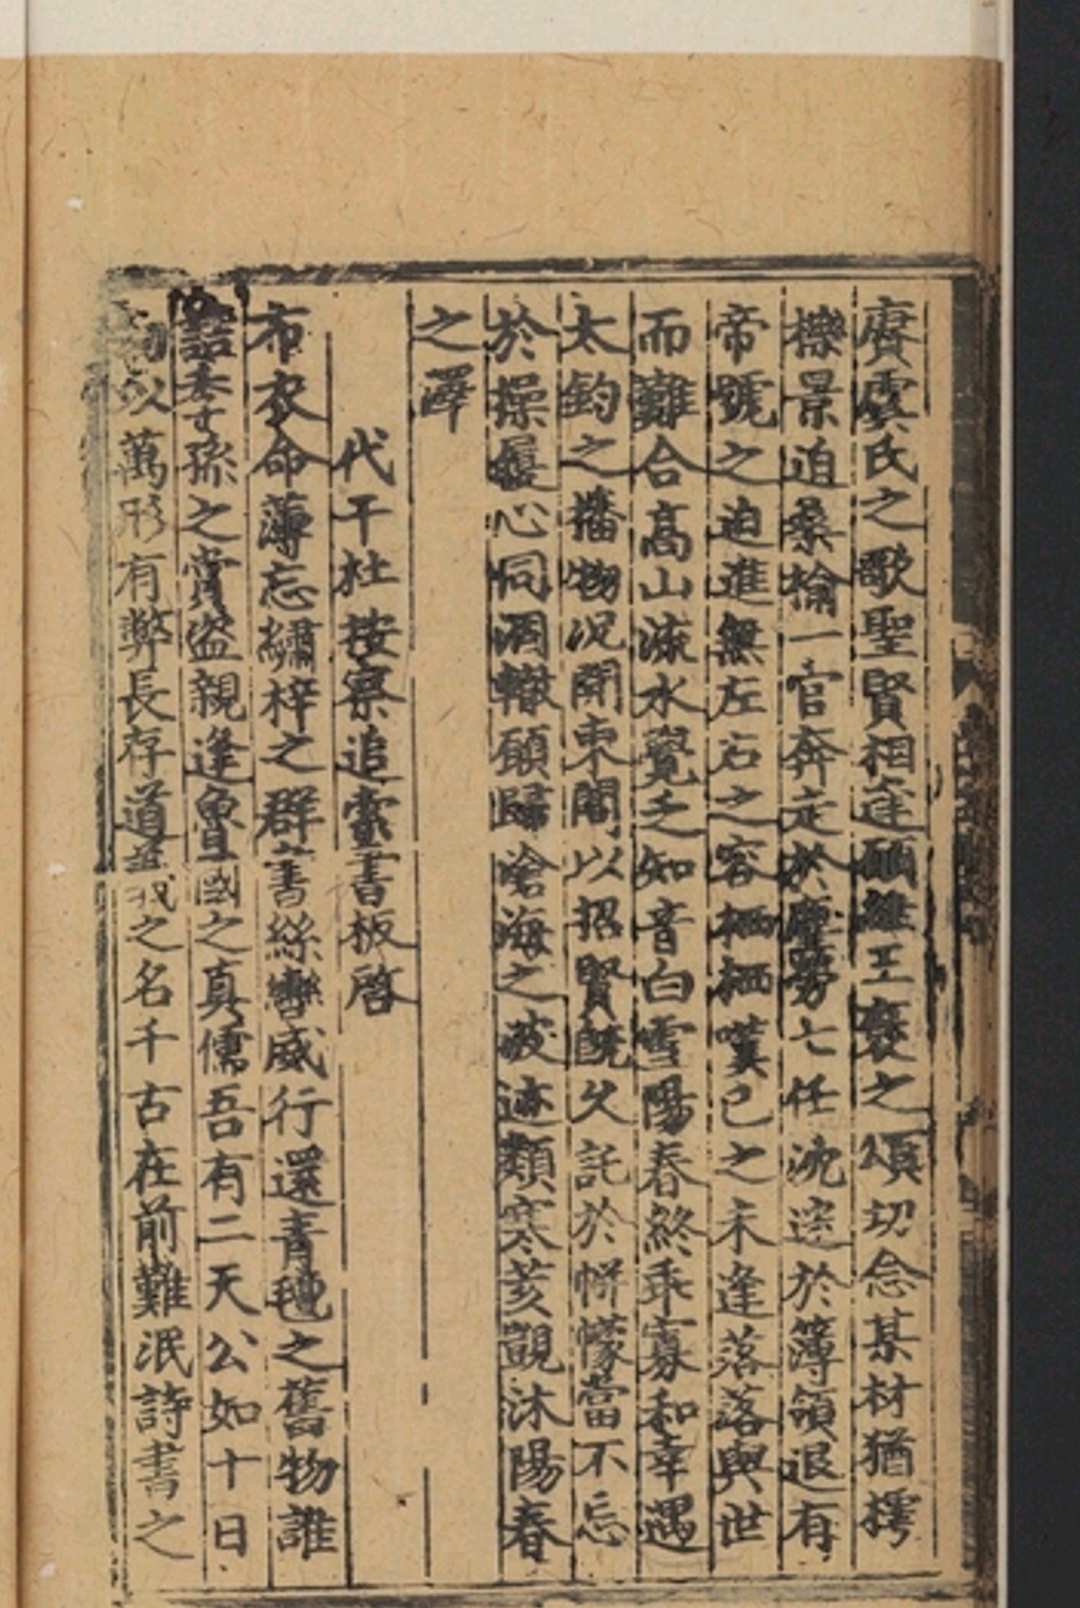 賡虞氏之歌聖賢相逢願繼王褒之頌切念某材猶樗
櫟景迫桑榆一官奔走於塵勞七任沈迷於簿領退有
帝號之迫進無左右之容栖栖嘆己之未逢落落與世
而難合高山流水覺乏知音白雪陽春終乖寡和幸遇
太鈞之播物況開東閣以招賢既久託於帡幪當不忘
於操履心同涸轍願歸滄海之波迹類寒荄覬沐陽春
之澤
代干杜按察追索書板啓
布衣命薄忘繡梓之群書絲轡威行還青氊之舊物誰
委孫之賞盜親逢魯國之真儒吾有二天公如十日
以萬形有弊長存道義之名千古在前難泯詩書之